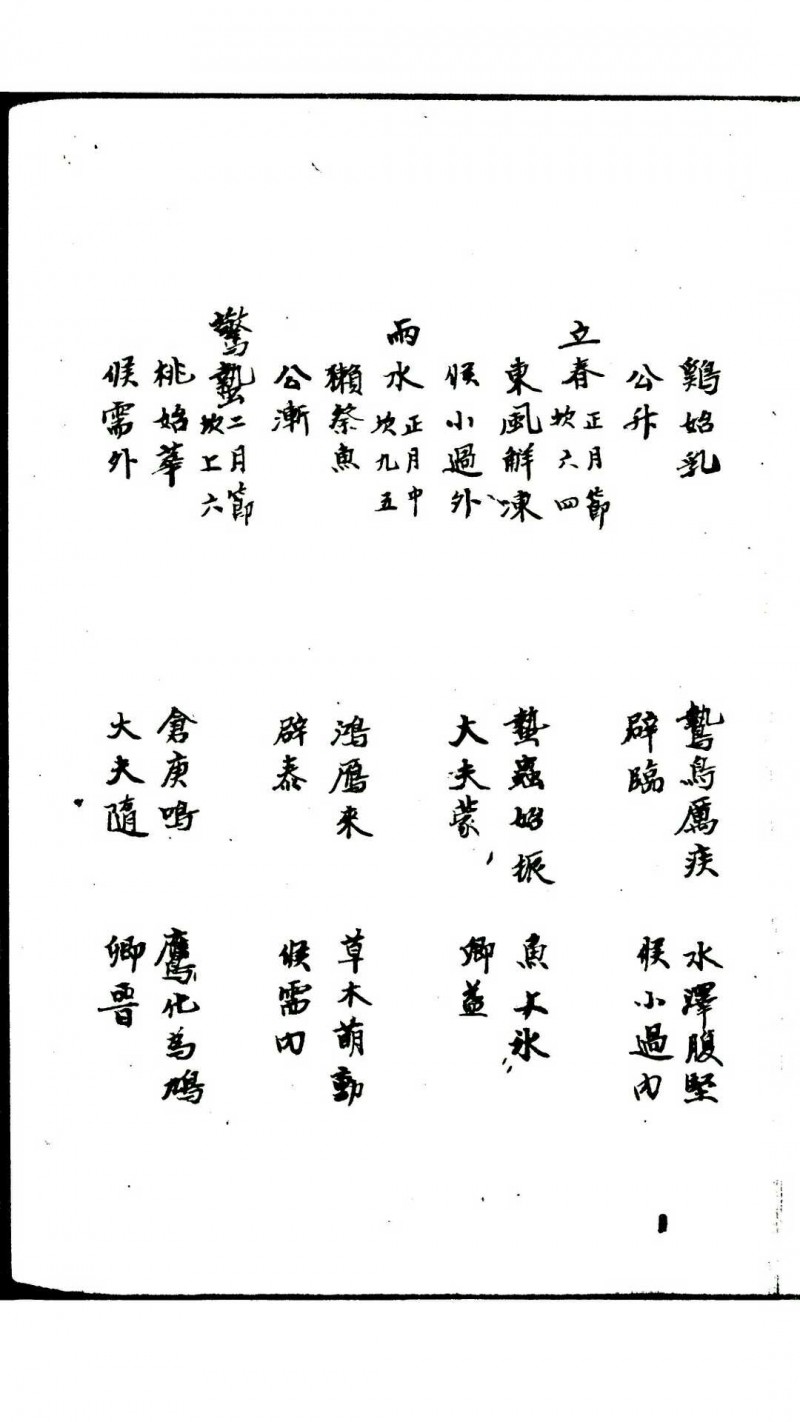 鷄始乳 鷙鳥厲疾 水澤腹堅
公升 辟臨 侯小過内
立春 正月節 坎六四
東風解凍 蟄蟲始振 魚上氷
侯小過外 大夫蒙 卿益
雨水 正月中 坎九五
獺祭魚 鴻鴈來 草木萌動
公漸 辟泰 侯需内
驚蟄 二月節 坎上六
桃始華 倉庚鳴 鷹化為鳩
侯需外 大夫隨 卿晉